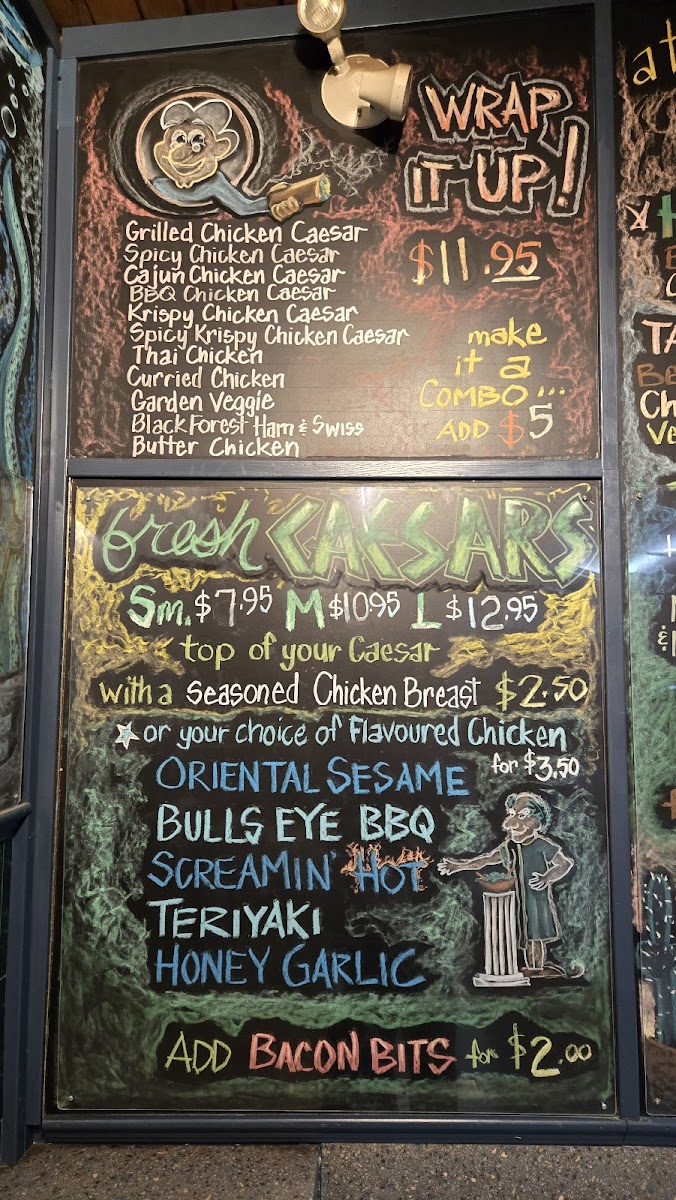 WRAP
IT UP!
Grilled Chicken Caesar
Spicy Chicken Caesar
Cajun Chicken Caesar
BBQ Chicken Caesar
Krispy Chicken Caesar
Spicy Krispy Chicken Caesar
Thai Chicken
Curried Chicken
Garden Veggie
Black Forest Ham & Swiss
Butter Chicken
$11.95
make
it a
COMBO...
ADD $5
fresh CAESARS
Sm. $7.95 M $10.95 L $12.95
top of your Caesar
with a Seasoned Chicken Breast $2.50
or your choice of Flavoured Chicken
for $3.50
ORIENTAL SESAME
BULLS EYE BBQ
SCREAMIN' HOT
TERIYAKI
HONEY GARLIC
ADD BACON BITS for $2.00